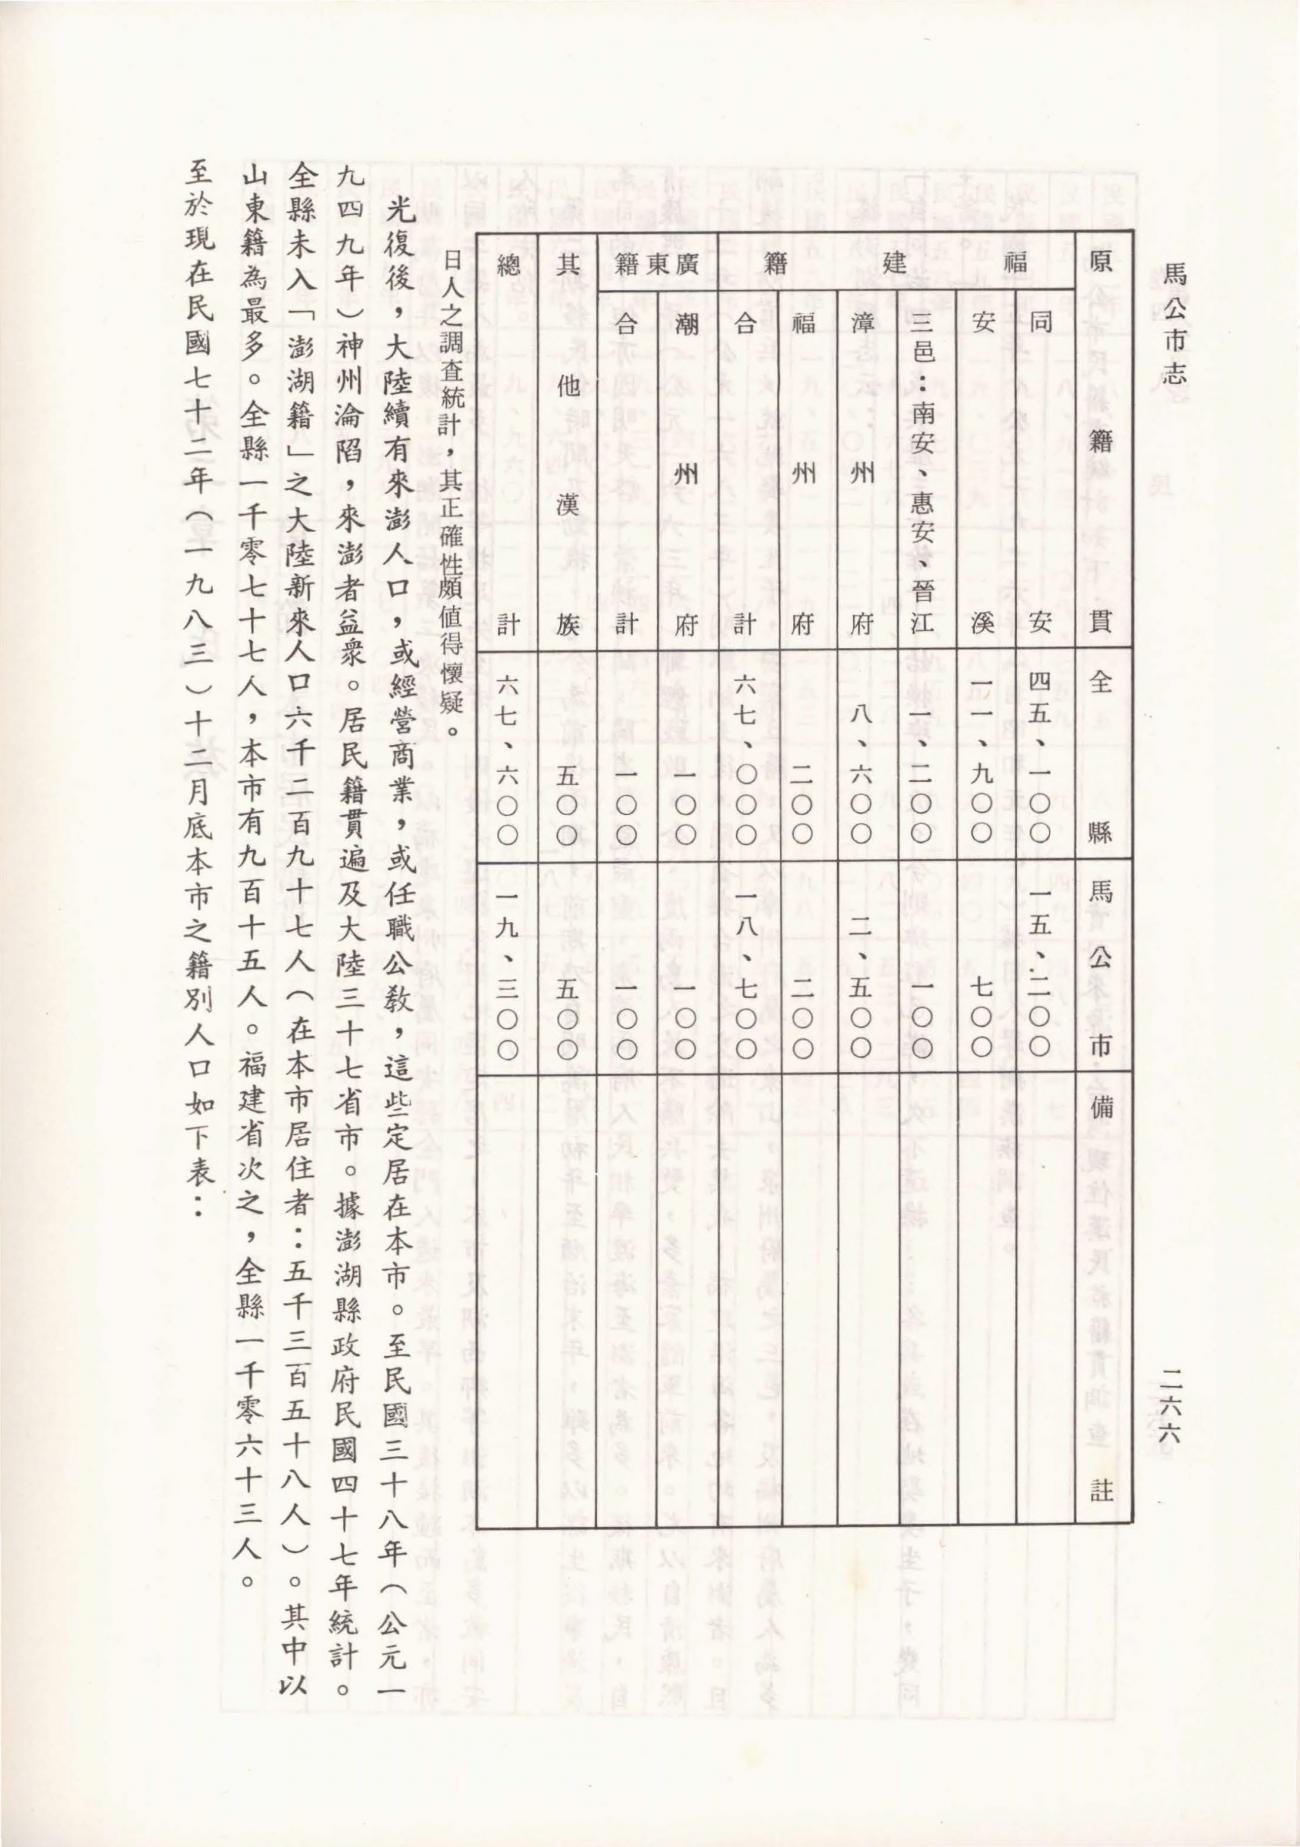 馬公市志
二六六
原籍貫 全縣 馬公市 備註
福建籍
同安 四五、一〇〇 一五、二〇〇
安溪 一一、九〇〇 七〇〇
三邑：南安、惠安、晉江 一、二〇〇 一〇〇
漳州府 八、六〇〇 二、五〇〇
福州府 二〇〇 二〇〇
合計 六七、〇〇〇 一八、七〇〇
廣東籍
潮州府 一〇〇 一〇〇
合計 一〇〇 一〇〇
其他漢族 五〇〇 五〇〇
總計 六七、六〇〇 一九、三〇〇
日人之調查統計，其正確性頗值得懷疑。
光復後，大陸續有來澎人口，或經營商業，或任職公教，這些定居在本市。至民國三十八年（公元一
九四九年）神州淪陷，來澎者益衆。居民籍貫遍及大陸三十七省市。據澎湖縣政府民國四十七年統計。
全縣未入「澎湖籍」之大陸新來人口六千二百九十七人（在本市居住者：五千三百五十八人）。其中以
山東籍為最多。全縣一千零七十七人，本市有九百十五人。福建省次之，全縣一千零六十三人。
至於現在民國七十二年（一九八三）十二月底本市之籍別人口如下表：